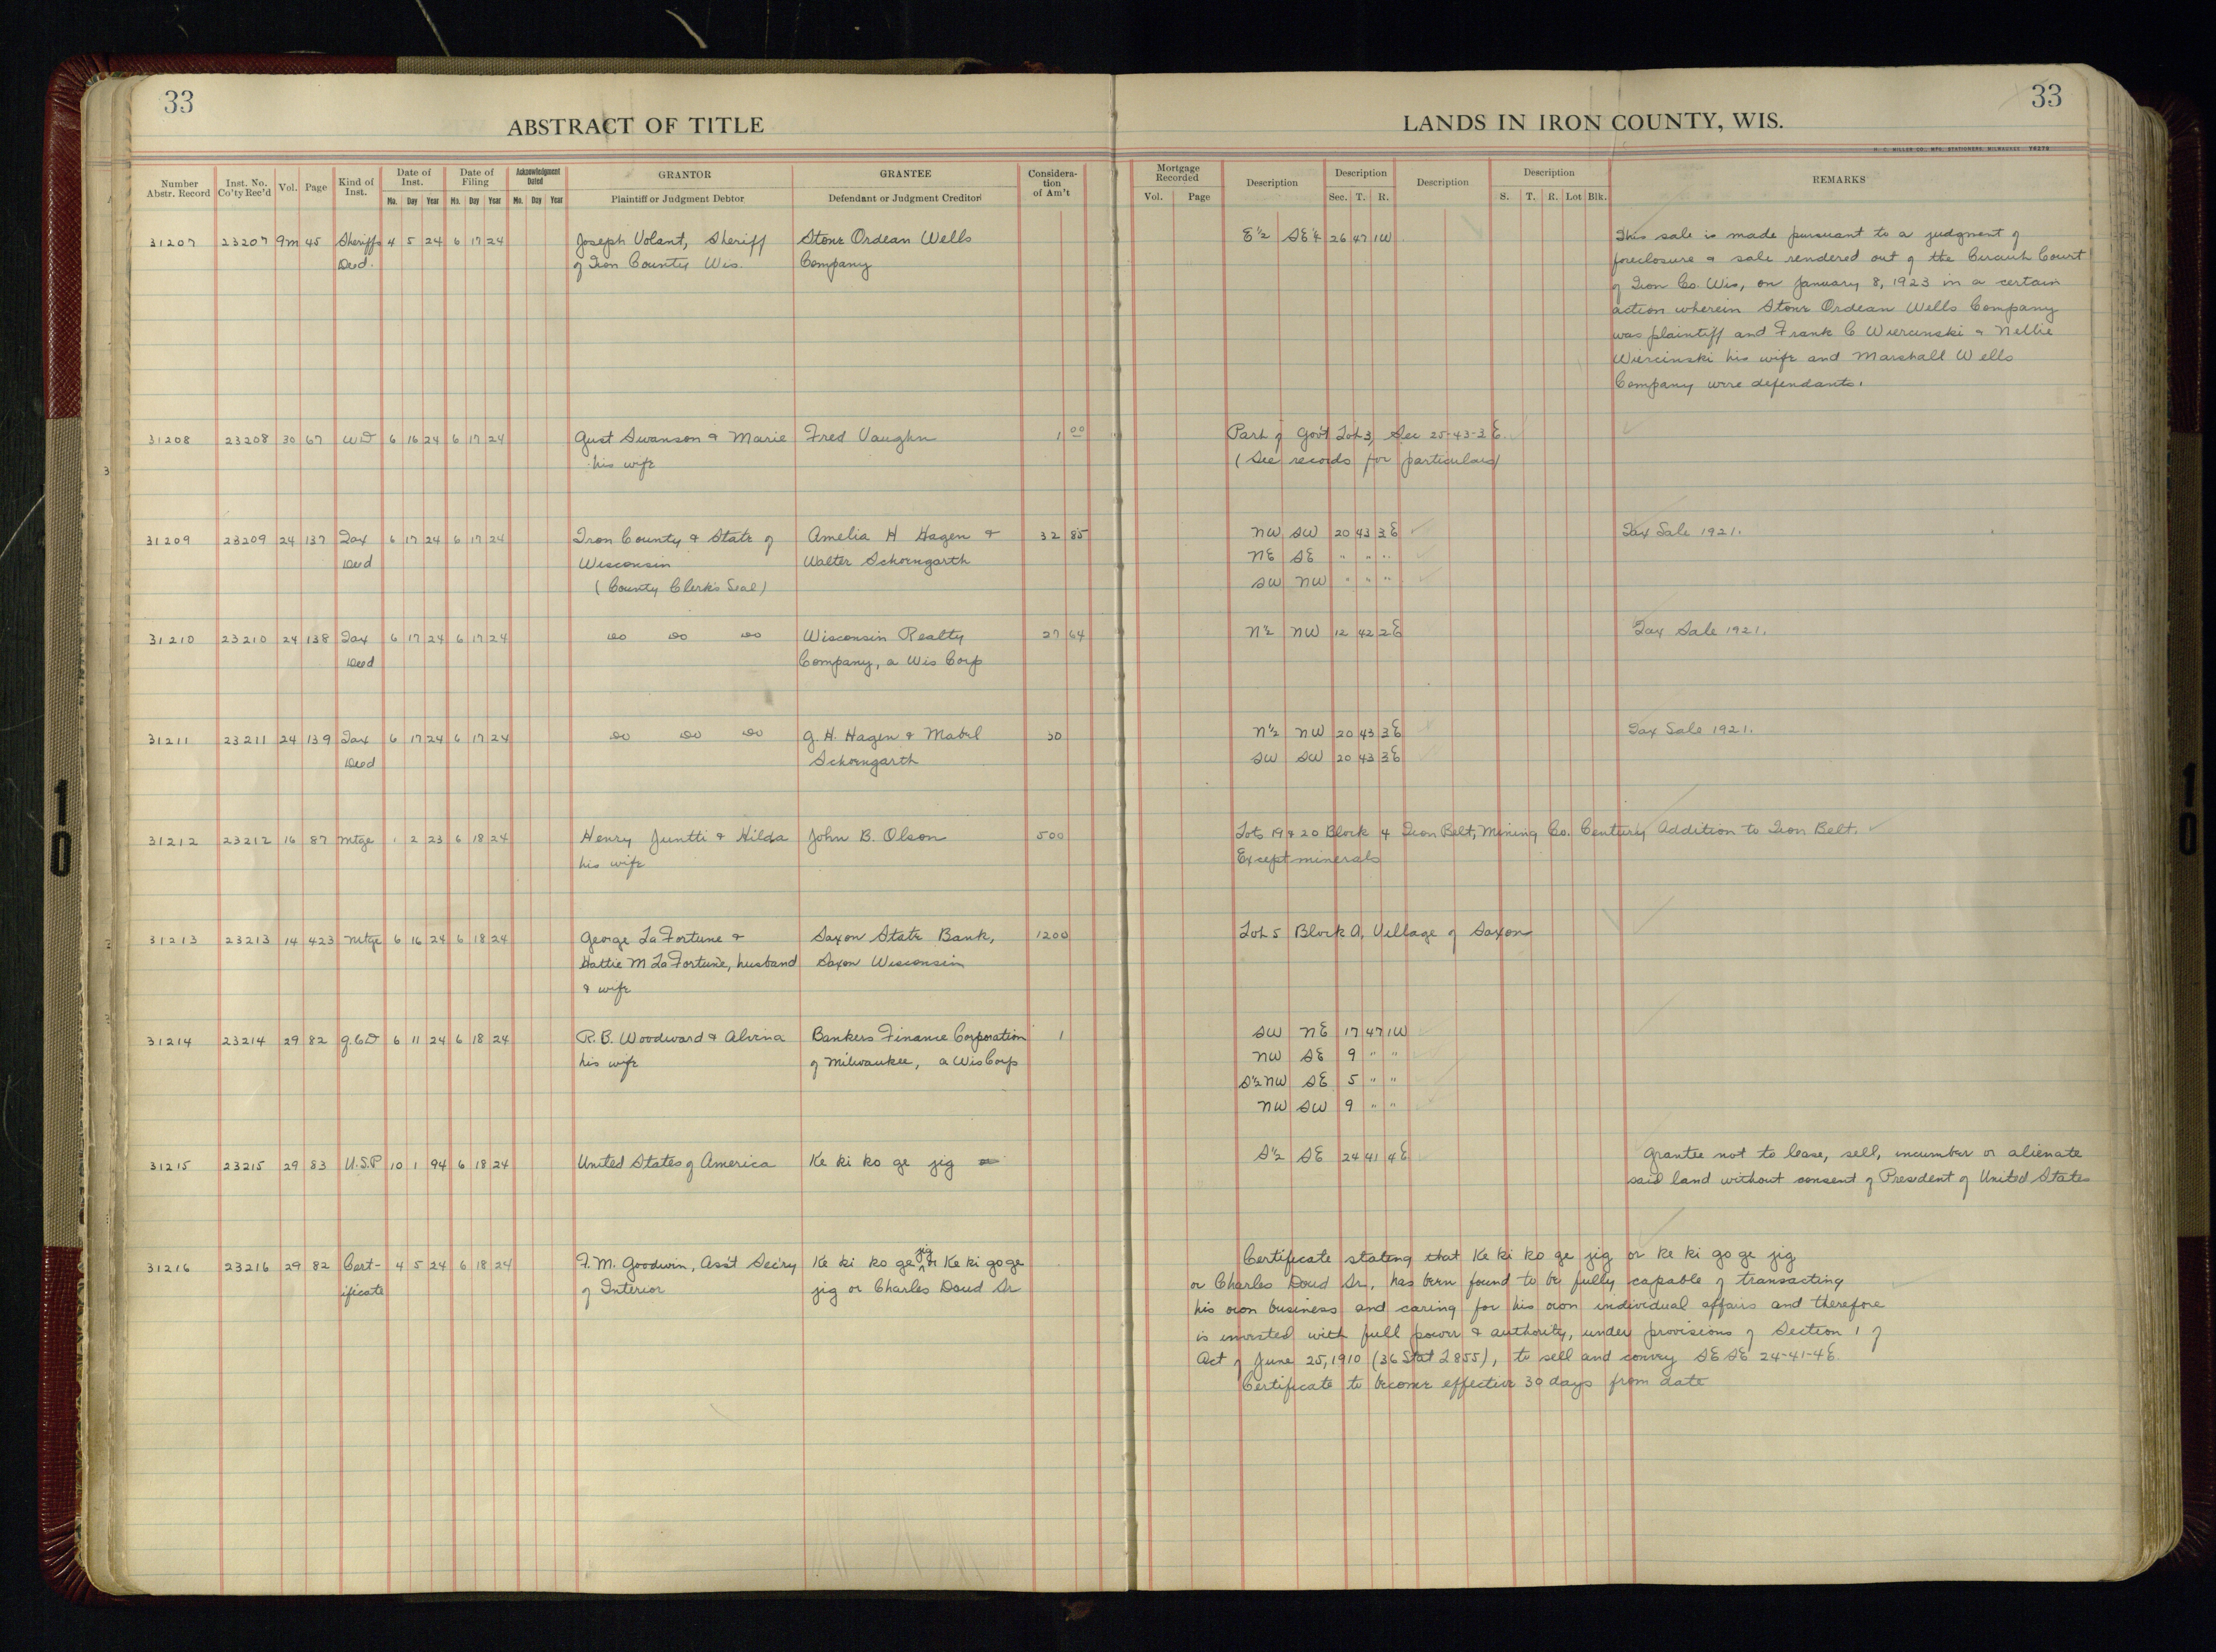 33
33
ABSTRACT OF TITLE
LANDS IN IRON COUNTY, WIS.
Number Abstr. Record
Inst. No. Co'ty Rec'd
Vol.
Page
Kind of Inst.
Date of Inst.
Mo. Day Year
Date of Filing
Mo. Day Year
Acknowledgment Dated
Mo. Day Year
GRANTOR
Plaintiff or Judgment Debtor
GRANTEE
Defendant or Judgment Creditor
Considera-tion of Am't
Mortgage Recorded
Vol. Page
Description
Description
Sec. T. R.
Description
Description
S. T. R. Lot Blk.
REMARKS
31207 23207 9m 45 Sheriffs 4 5 24 6 17 24 Joseph Volant, Sheriff Stone Ordean Wells E½ SE¼ 26 47 1W This sale is made pursuant to a judgment of
Deed. of Iron County Wis. Company foreclosure & sale rendered out of the Circuit Court
of Iron Co. Wis, on January 8, 1923 in a certain
action wherein Stone Ordean Wells Company
was plaintiff and Frank C Wiercinski & Nellie
Wiercinski his wife and Marshall Wells
Company were defendants.
31208 23208 30 67 WD 6 16 24 6 17 24 Gust Swanson & Marie Fred Vaughn 1 00 Part of Gov't Lot 3, Sec 25-43-3E.
his wife (See records for particulars)
31209 23209 24 137 Tax 6 17 24 6 17 24 Iron County & State of Amelia H Hagen & 32 85 NW SW 20 43 3E Tax Sale 1921.
Deed Wisconsin Walter Schoengarth NE SE " " "
(County Clerk's Seal) SW NW " " "
31210 23210 24 138 Tax 6 17 24 6 17 24 do do do Wisconsin Realty 27 64 N½ NW 12 42 2E Tax Sale 1921.
Deed Company, a Wis Corp
31211 23211 24 139 Tax 6 17 24 6 17 24 do do do G. H. Hagen & Mabel 30 N½ NW 20 43 3E Tax Sale 1921.
Deed Schoengarth SW SW 20 43 3E
31212 23212 16 87 Mtge 1 2 23 6 18 24 Henry Juntti & Hilda John B. Olson 500 Lots 19 & 20 Block 4 Iron Belt, Mining Co. Century Addition to Iron Belt.
his wife Except minerals
31213 23213 14 423 Mtge 6 16 24 6 18 24 George LaFortune & Saxon State Bank, 1200 Lot 5 Block A, Village of Saxon
Hattie M LaFortune, husband Saxon Wisconsin
& wife
31214 23214 29 82 Q.C.D 6 11 24 6 18 24 R. B. Woodward & Alvina Bankers Finance Corporation 1 SW NE 17 47 1W
his wife of Milwaukee, a Wis Corp NW SE 9 " "
S½NW SE 5 " "
NW SW 9 " "
31215 23215 29 83 U.S.P 10 1 94 6 18 24 United States of America Ke ki ko ge jig S½ SE 24 41 4E Grantee not to lease, sell, incumber or alienate
said land without consent of President of United States
31216 23216 29 82 Cert- 4 5 24 6 18 24 F. M. Goodwin, Ass't Sec'ry Ke ki ko ge jig or Ke ki go ge Certificate stating that Ke ki ko ge jig or Ke ki go ge jig
ificate of Interior jig or Charles Doud Sr or Charles Doud Sr., has been found to be fully capable of transacting
his own business and caring for his own individual affairs and therefore
is invested with full power & authority, under provisions of Section 1 of
Act of June 25, 1910 (36 Stat L 855), to sell and convey SE SE 24-41-4E.
Certificate to become effective 30 days from date
10
10